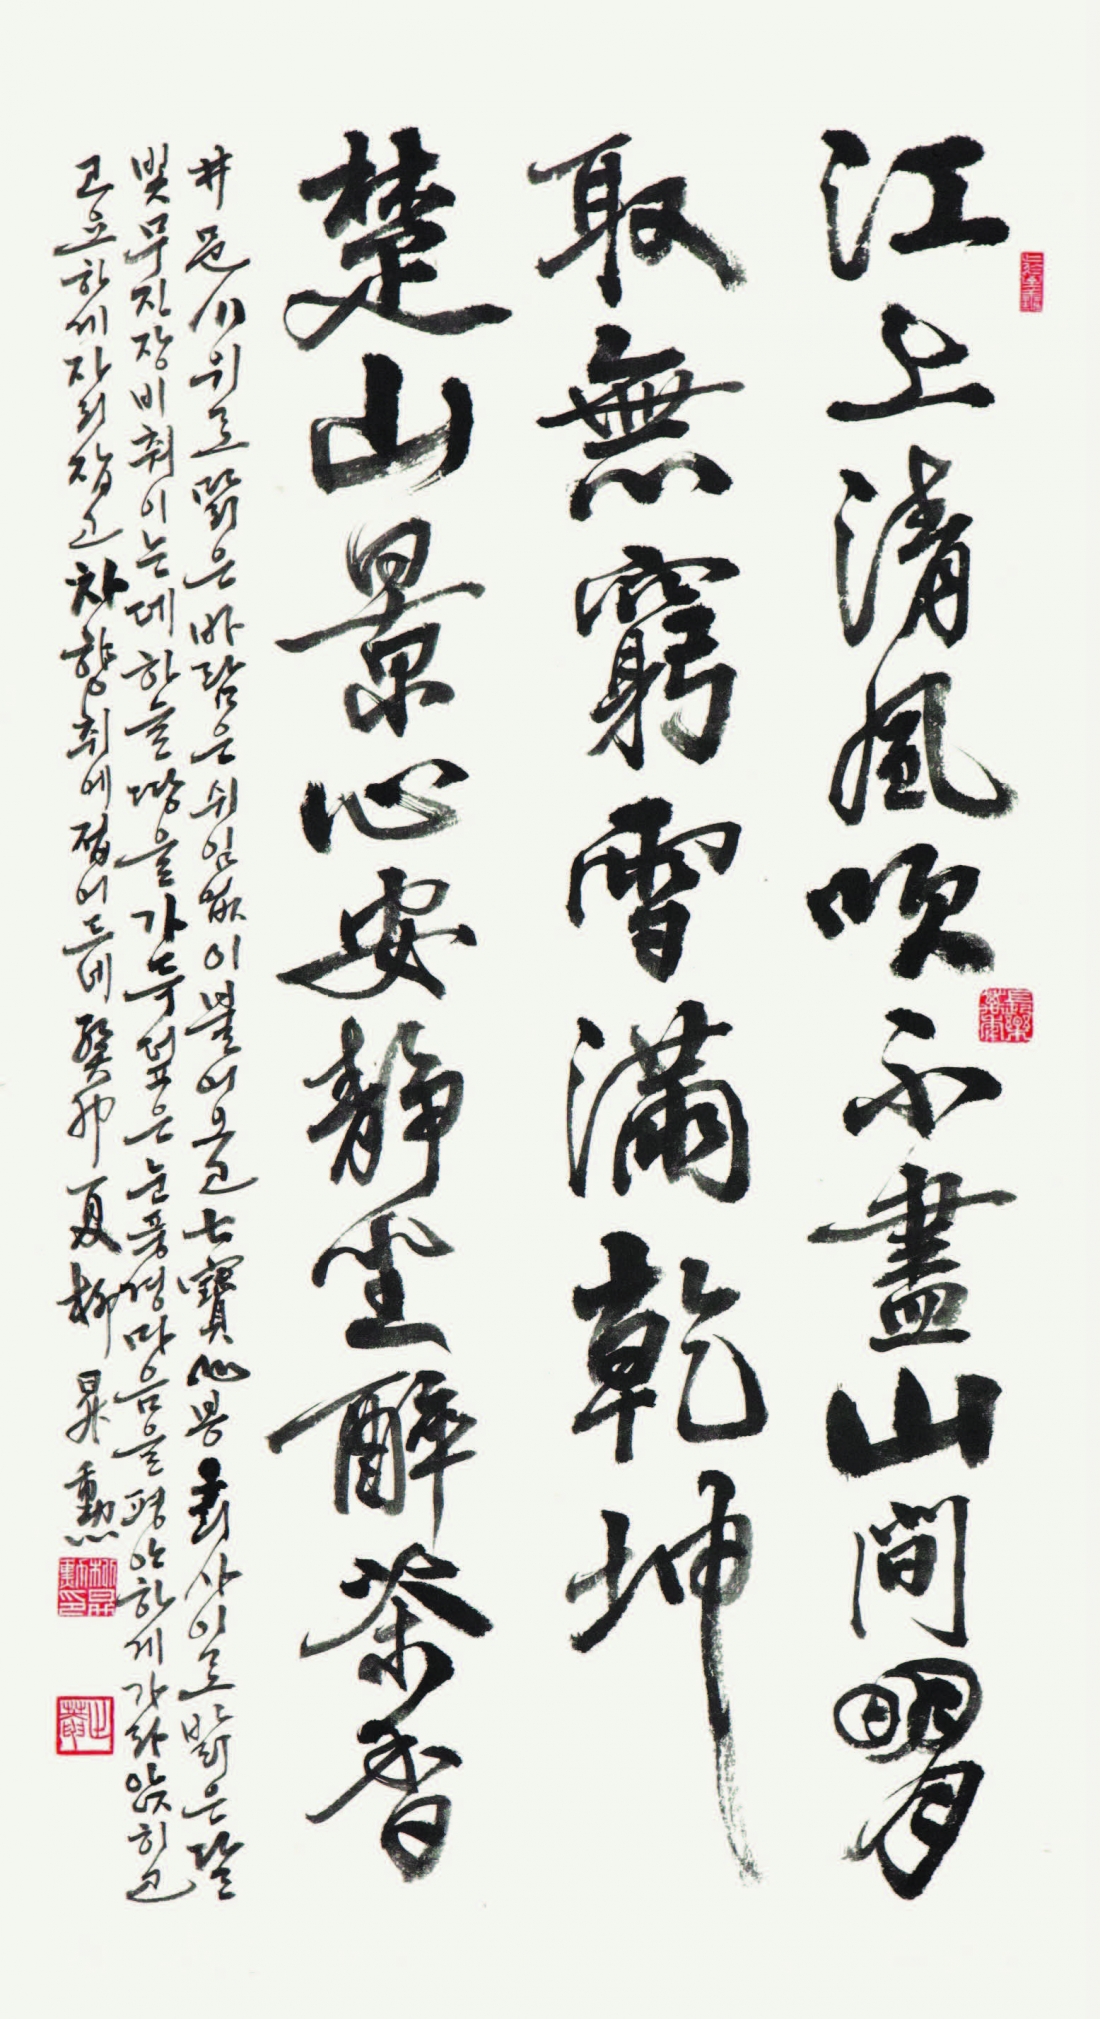 江上清風吹不盡山間明月
取無窮雪滿乾坤
楚山景心安靜坐醉茶香
井邑川 위로 맑은 바람은 쉬임없이 불어오고 七寶山 봉 사이로 밝은 달
빛 무진장 비취이는데 하늘 땅을 가득 덮은 눈 풍경 마음을 평안하게 가라앉히고
고요하게 자리잡고 차향 취에 젙어드네 癸卯 夏 柳 昇 勳